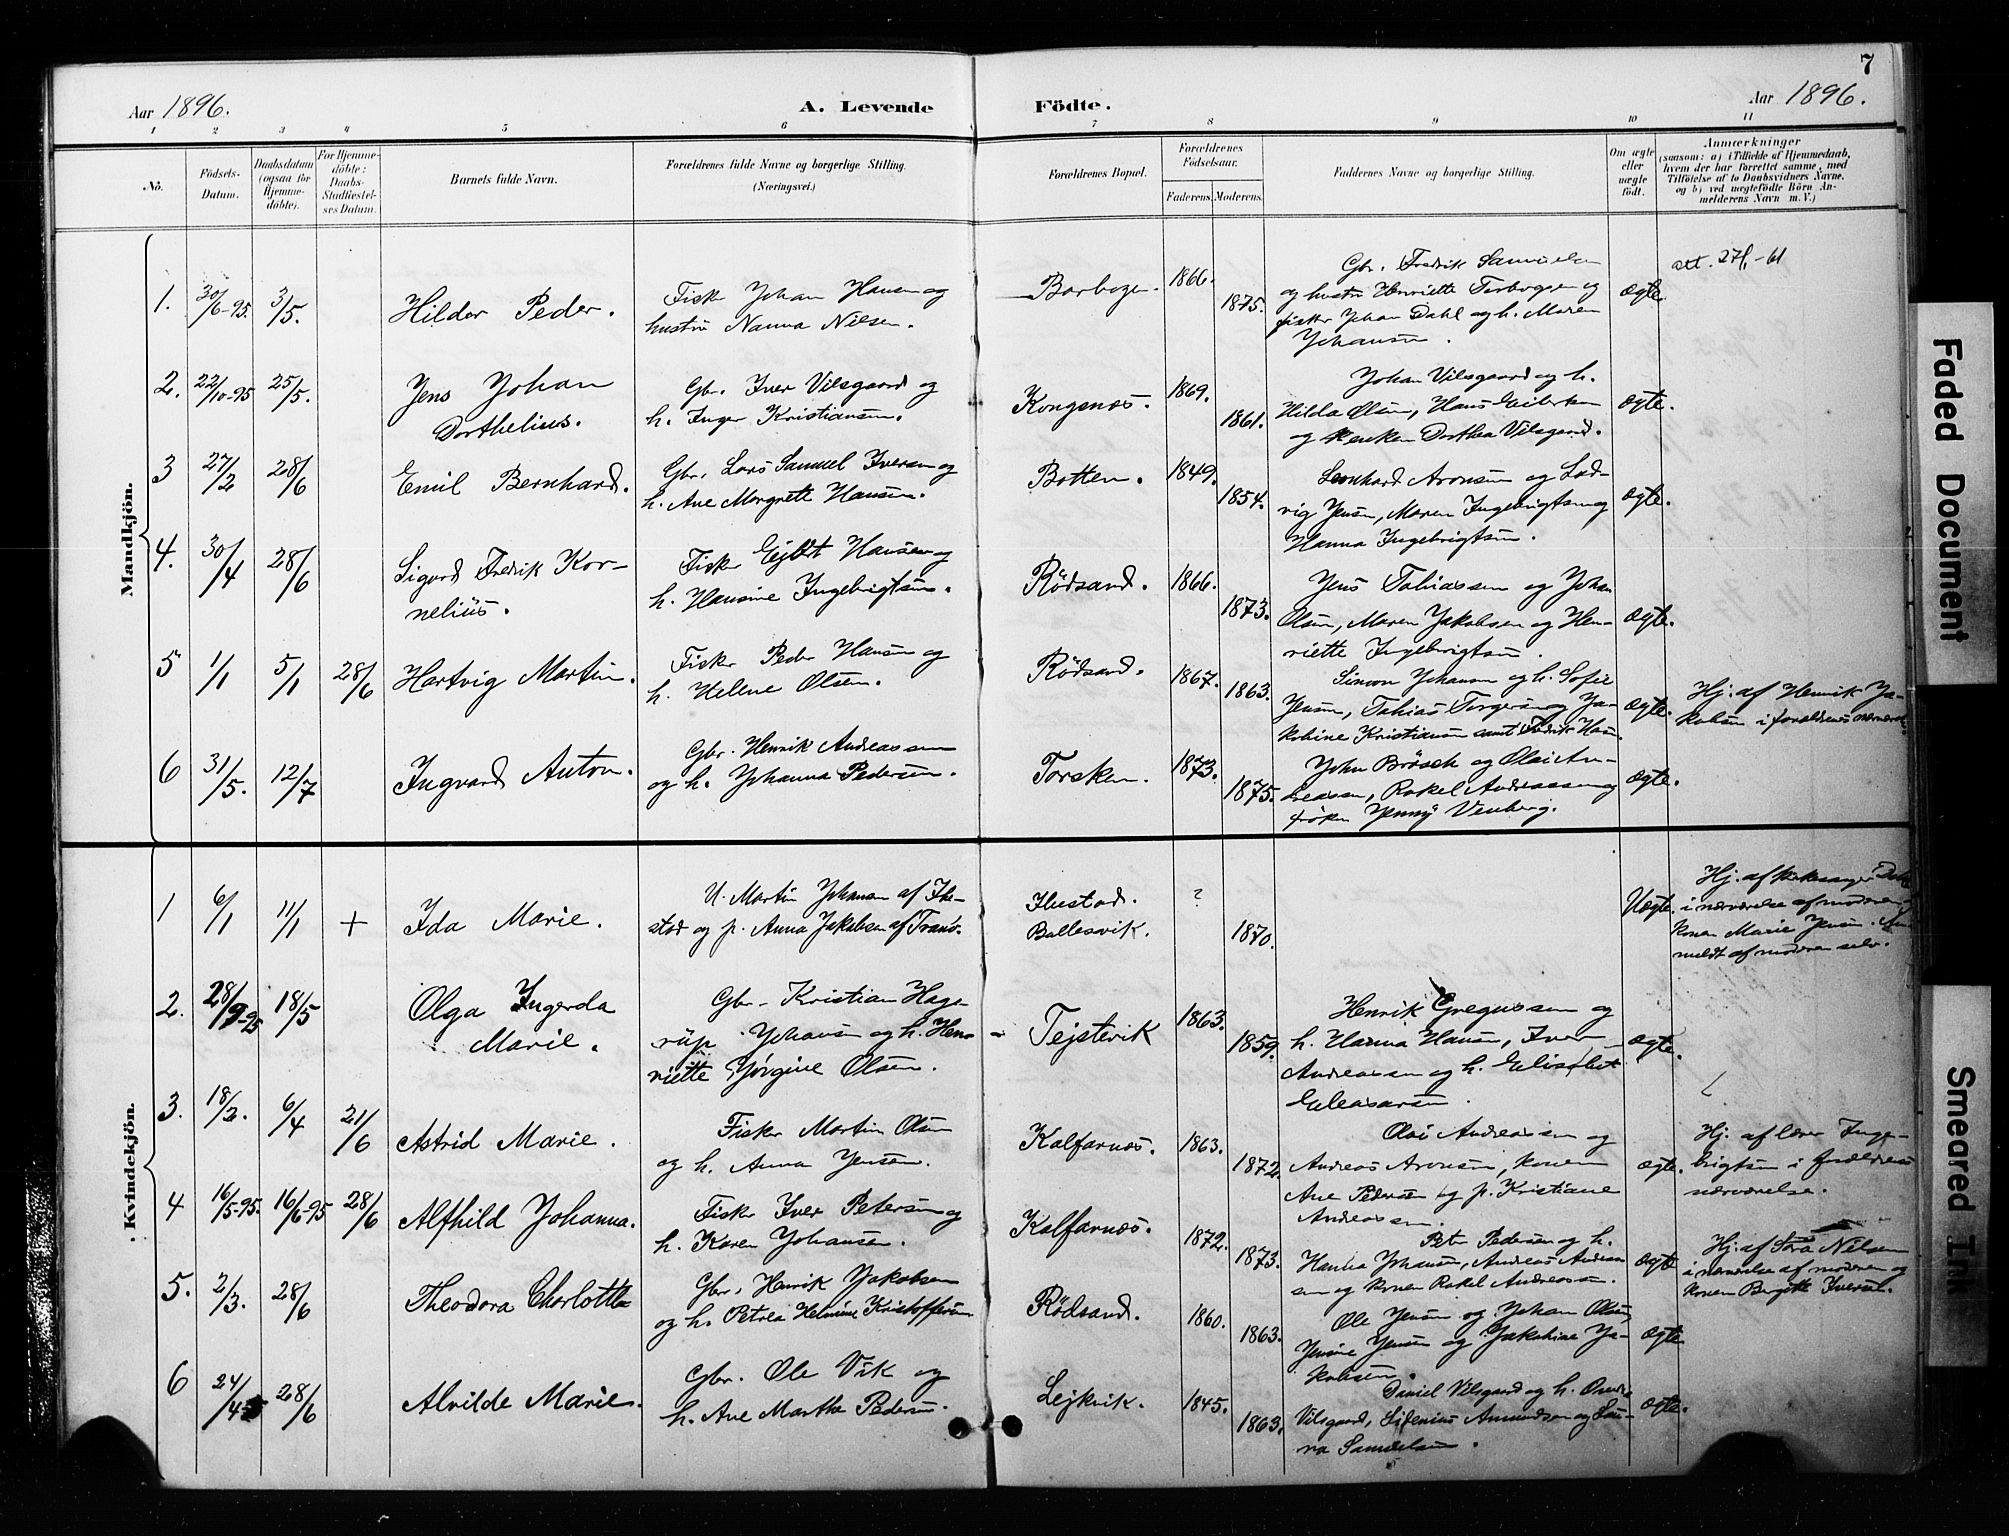 7
Aar 1896. A. Levende Födte. Aar 1896.
1 2 3 4 5 6 7 8 9 10 11
No. Födsels-Datum. Daabsdatum (ogsaa for Hjemme-döbte). For Hjemme-döbte: Daabs-Stadfæstel-ses Datum. Barnets fulde Navn. Forældrenes fulde Navne og borgerlige Stilling. (Næringsvei.) Forældrenes Bopæl. Forældrenes Födselsaar. Faderens. Moderens. Faddernes Navne og borgerlige Stilling. Om ægte eller uægte født. Anmærkninger (saasom: a) i Tilfælde af Hjemmedaab, hvem der har forrettet samme, med Tilföielse af to Daabsvidners Navne, og b) ved uægtefödte Börn, Anmelderens Navn m. V.)
Mandkjön.
1. 30/6-95. 3/5. Hilder Peder. Fisker Johan Hansen og
hustru Nanna Nilsen.
Barbogen. 1866. 1875.
Gbr. Fredrik Samuelsen
og hustru Henriette Torbogsen og
fisker Johan Dahl og h. Maren
Johansen.
ægte. att. 27/1-61
2. 22/10-95 25/5. Jens Johan
Dorthelius.
Gbr. Iver Vilsgaard og
h. Inger Kristiansen.
Kongsnæs. 1869. 1861.
Johan Vilsgaard og h.
Hilda Olsen, Hans Eilertsen
og Dorthea Vilsgaard.
ægte.
3 27/2 28/6 Emil Bernhard.
Gbr. Lars Samuel Iversen og
h. Ane Margrette Hansen.
Botten. 1849. 1854.
Leonhard Aronsen og Lud-
vig Jensen, Maren Ingebrigtsen og
Hanna Ingebrigtsen.
ægte.
4. 30/4 28/6 Sigvard Fredrik Kor-
nelius.
Fisker Ejlert Hansen og
h. Hansine Ingebrigtsen.
Rödsand. 1866. 1873.
Jens Tobiassen og Johan
Olsen, Maren Jakobsen og Hen-
riette Ingebrigtsen.
ægte.
5 1/1 5/1 28/6 Hartvig Martin.
Fisker Peder Hansen og
h. Helene Olsen.
Rödsand. 1867. 1863.
Simon Johansen og h. Sofie
Jensen, Tobias Torgersen og Ja-
kobine Kristiansen samt Fredrik Hansen.
ægte.
Hj. af Henrik Ja-
kobsen i forældrenes nærværelse
6 31/5. 12/7 Ingvard Anton.
Gbr. Henrik Andreassen
og h. Johanna Pedersen.
Torsken. 1873. 1875.
John Brösch og Olai An-
dreassen, Rakel Andreassen og
frøken Jenny Venberg.
ægte.
Kvindekjön.
1 6/1 11/1 + Ida Marie.
U. Martin Johansen af Ibe-
stad og p. Anna Jakobsen af Tranö.
Ibestad.
Ballesvik.
? 1870.
Uægte.
Hj. af kirkesanger
i nærværelse af moderen og
konen Marie Jensen. An-
meldt af moderen selv.
2. 28/9-95 18/5 Olga Ingerda
Marie.
Gbr. Kristian Hage-
rup Johansen og h. Hen-
riette Jörgine Olsen.
Tejstevik 1863. 1859.
Henrik Gregussen og
h. Hanna Hansen, Iver
Andreassen og h. Elisabet
Eleasarsen.
ægte.
3. 18/2. 6/4 21/6 Astrid Marie.
Fisker Martin Olsen
og h. Anna Jensen.
Kalfarnæs. 1863. 1872.
Olai Andreassen og
Andreas Aronsen, konen
Ane Pedersen og p. Kristiane
Andreassen.
ægte.
Hj. af lærer Inge-
brigtsen i forældrenes
nærværelse.
4 16/5-95. 16/6-95 28/6 Alfhild Johanna.
Fisker Iver Petersen og
h. Karen Johansen.
Kalfarnæs. 1872. 1873.
Peter Pedersen og h.
Hanna Johansen, Andreas Andreas-
sen og konen Rakel Andreassen.
ægte
Hj. af Sara Nilsen
i nærværelse af moderen og
konen Birgitte Iversen.
5. 2/3. 28/6 Theodora Charlotte
Gbr. Henrik Jakobsen
og h. Petrea Helmine Kristoffersen
Rödsand. 1860. 1863.
Ole Jensen og Johan Olsen,
Jensine Jensen og Jakobine Ja-
kobsen.
ægte
6 24/4 28/6 Alvilde Marie.
Gbr. Ole Vik og
h. Ane Marthe Pedersen.
Lejkvik. 1845. 1863.
Daniel Vilsgaard og h.
Vilsgaard, Sidenius Amundsen og Lau-
ra Samuelsen.
ægte.
Faded Document
Smeared Ink